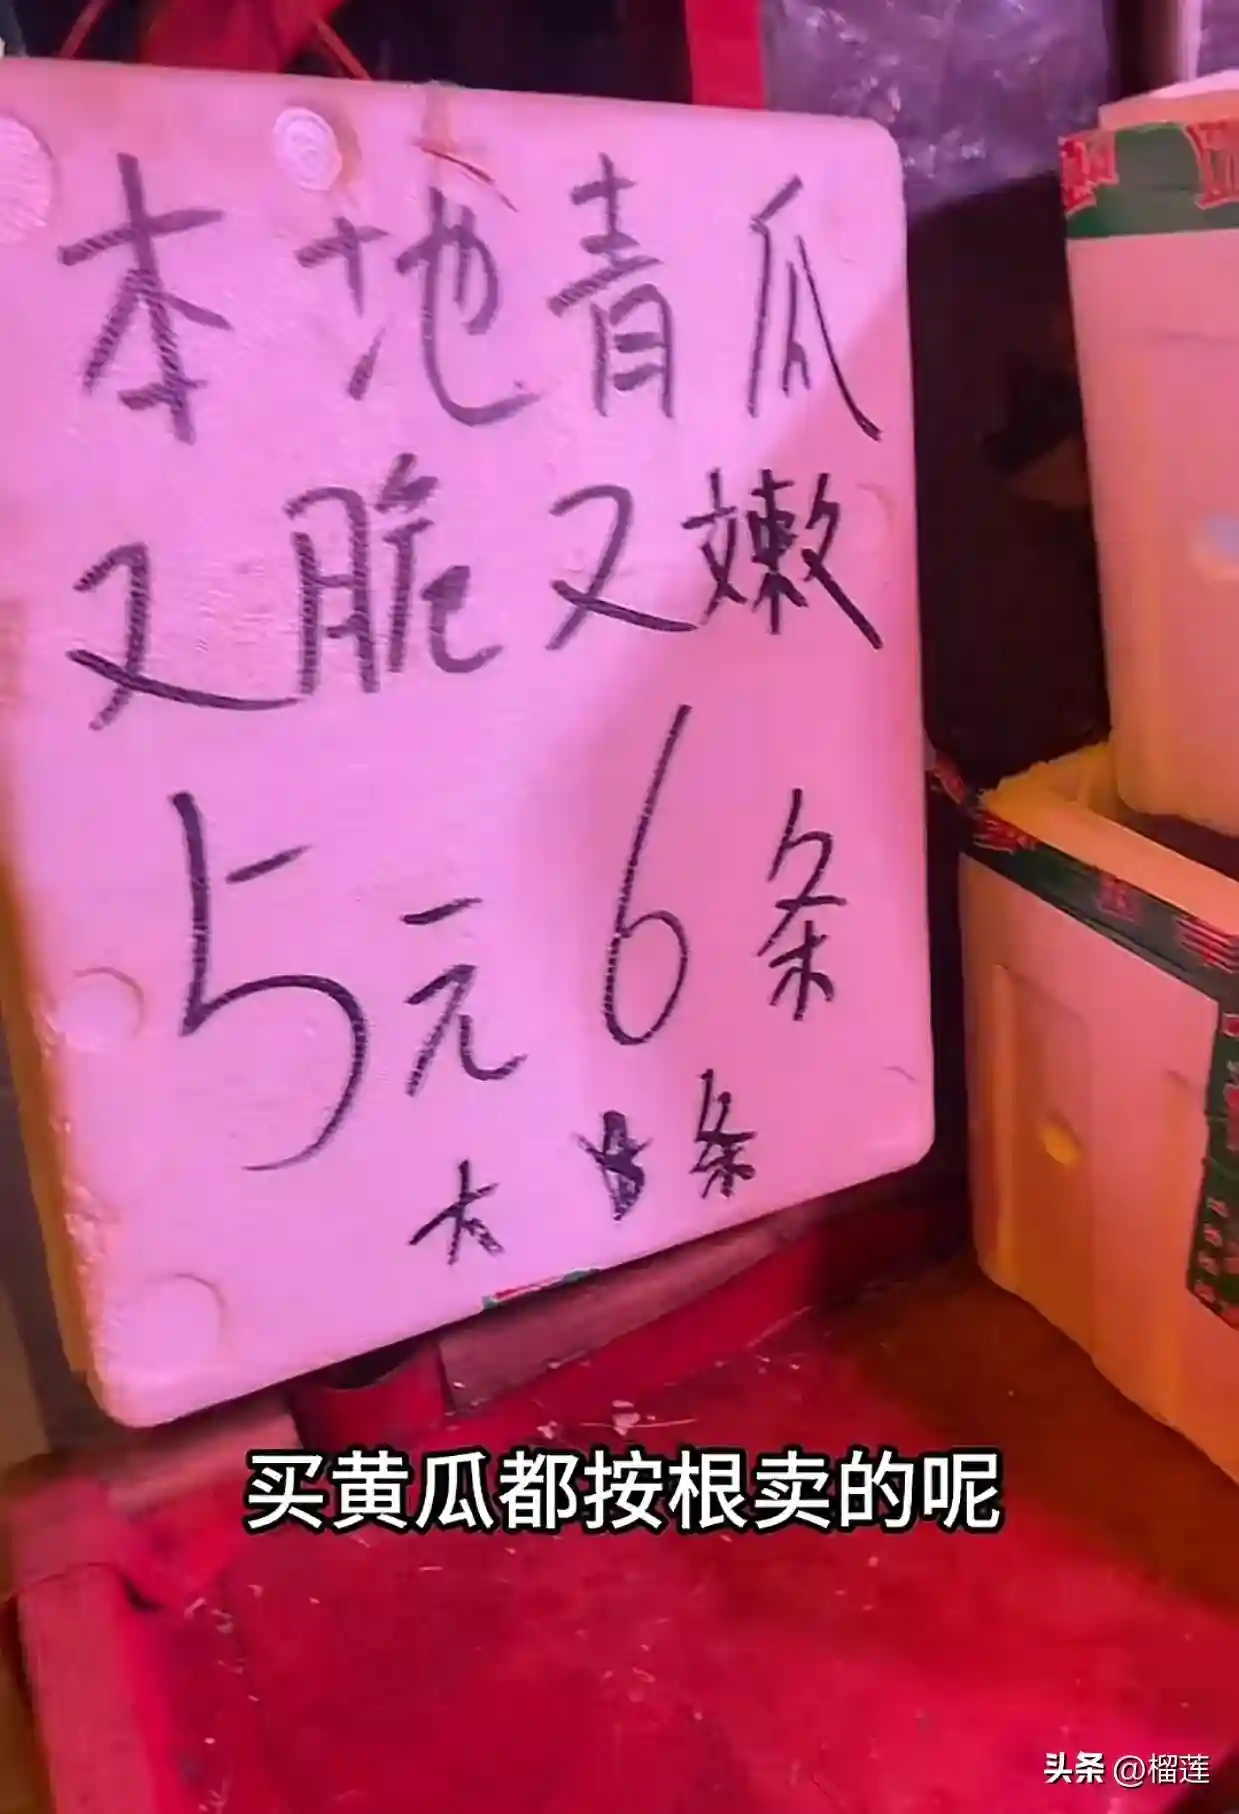 本地青瓜
又脆又嫩
5元6条
大 条
买黄瓜都按根卖的呢
头条 @榴莲